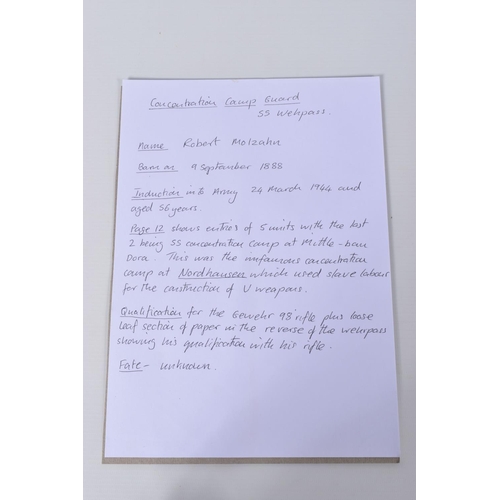 Concentration Camp Guard
SS Wehpass.
Name Robert Molzahn
Born on 9 September 1888
Induction into Army 24 March 1944 and
aged 56 years.
Page 12 shows entries of 5 units with the last
2 being SS concentration camp at Mittle-bau
Dora. This was the infamous concentration
camp at Nordhausen which used slave labour
for the construction of V weapons.
Qualification for the Gewehr 98 rifle plus loose
leaf section of paper in the reverse of the wehrpass
showing his qualification with his rifle.
Fate - unknown.